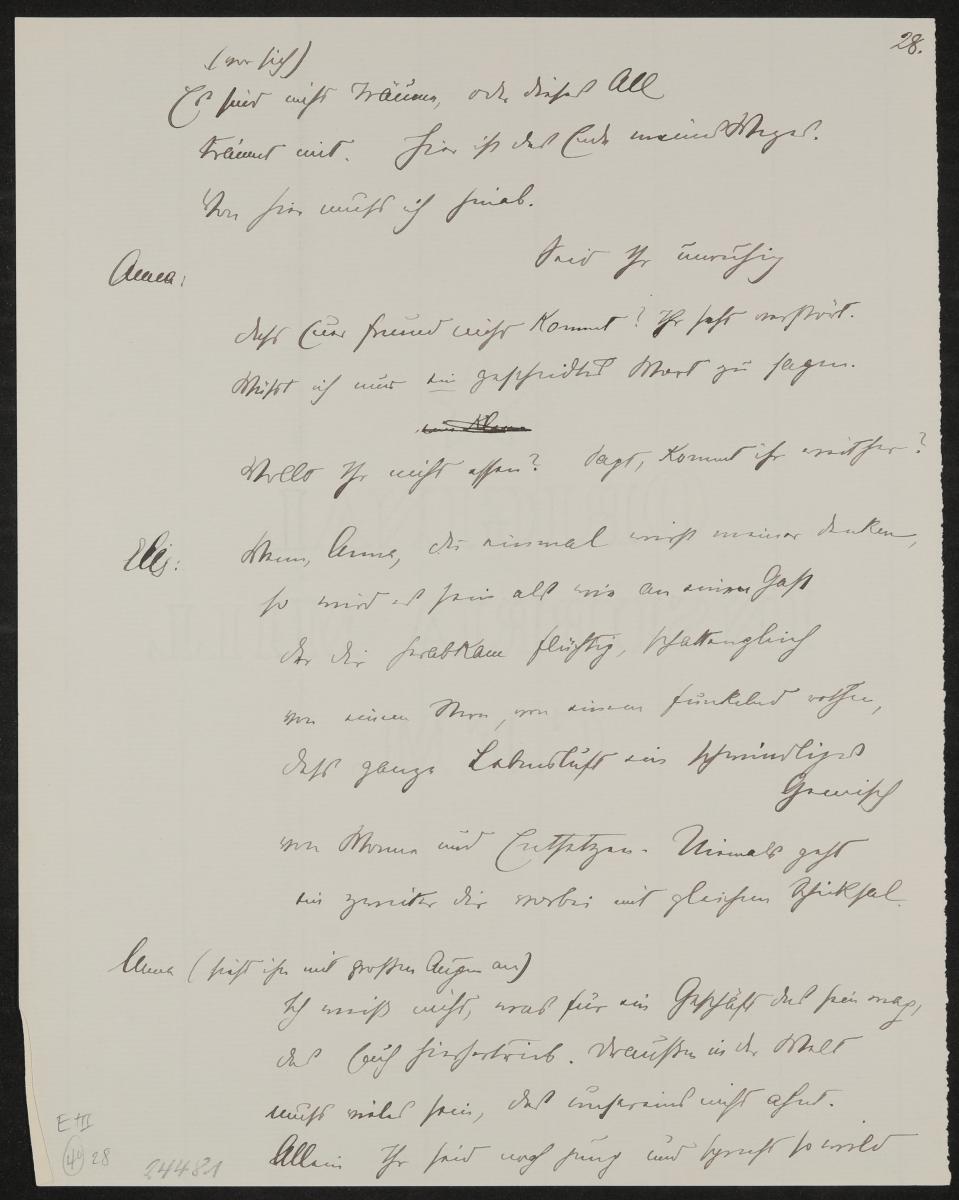 28.
(vor sich)
Es sind nicht Träume, oder dieses All
träumt mit. Hier ist das Ende meines Weges.
Von hier muss ich hinab.
Seid Ihr unruhig
Anna:
dass Euer Freund nicht kommt? Ihr seht verstört.
Wüsst ich nur ein gescheidtes Wort zu sagen.
Wollt Ihr nicht essen? Sagt, kommt ihr weither?
Elis: Wenn, Anna, du einmal wirst meiner denken,
so wird es sein als wie an einen Gast
der dir herabkam flüchtig, schattengleich
von einem Stern, von einem funkelnd rothen,
dass ganze Lebensluft ein schwindliges
Gemisch
von Wonne und Entsetzen. Niemals geht
ein zweiter dir vorbei mit gleichem Schicksal.
Anna (sieht ihn mit großen Augen an)
Ich weiß nicht, was für ein Geschäft das sein mag,
das Euch hierhertrieb. Draußen in der Welt
muss vieles sein, das unsereins nicht ahnt.
Allein Ihr seid noch jung und sprecht so wild
E III
28
24481